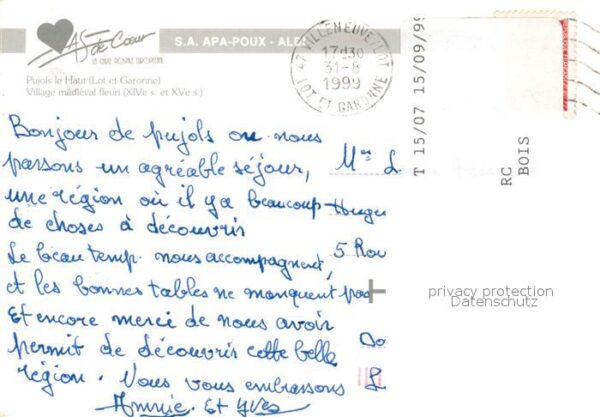 As de Cœur
LA CARTE POSTALE EUROPEENNE
S.A. APA-POUX - ALBI
Pujols le Haut (Lot et Garonne)
Village médiéval fleuri (XIVe s. et XVe s.)
47 VILLENEUVE/LOT
17H30
31-8
1999
LOT ET GARONNE
T 15/07 15/09/99
RC
BOIS
Bonjour de pujols ou nous
passons un agréable séjour,
une région où il y a beaucoup
de choses à découvris
Le beau temp nous accompagnent,
et les bonnes tables ne manquent pas
Et encore merci de nous avoir
permit de découvris cette belle
région. Nous vous embrassons
Annie. Et Yves
Mme L
5 Rou
privacy protection
Datenschutz